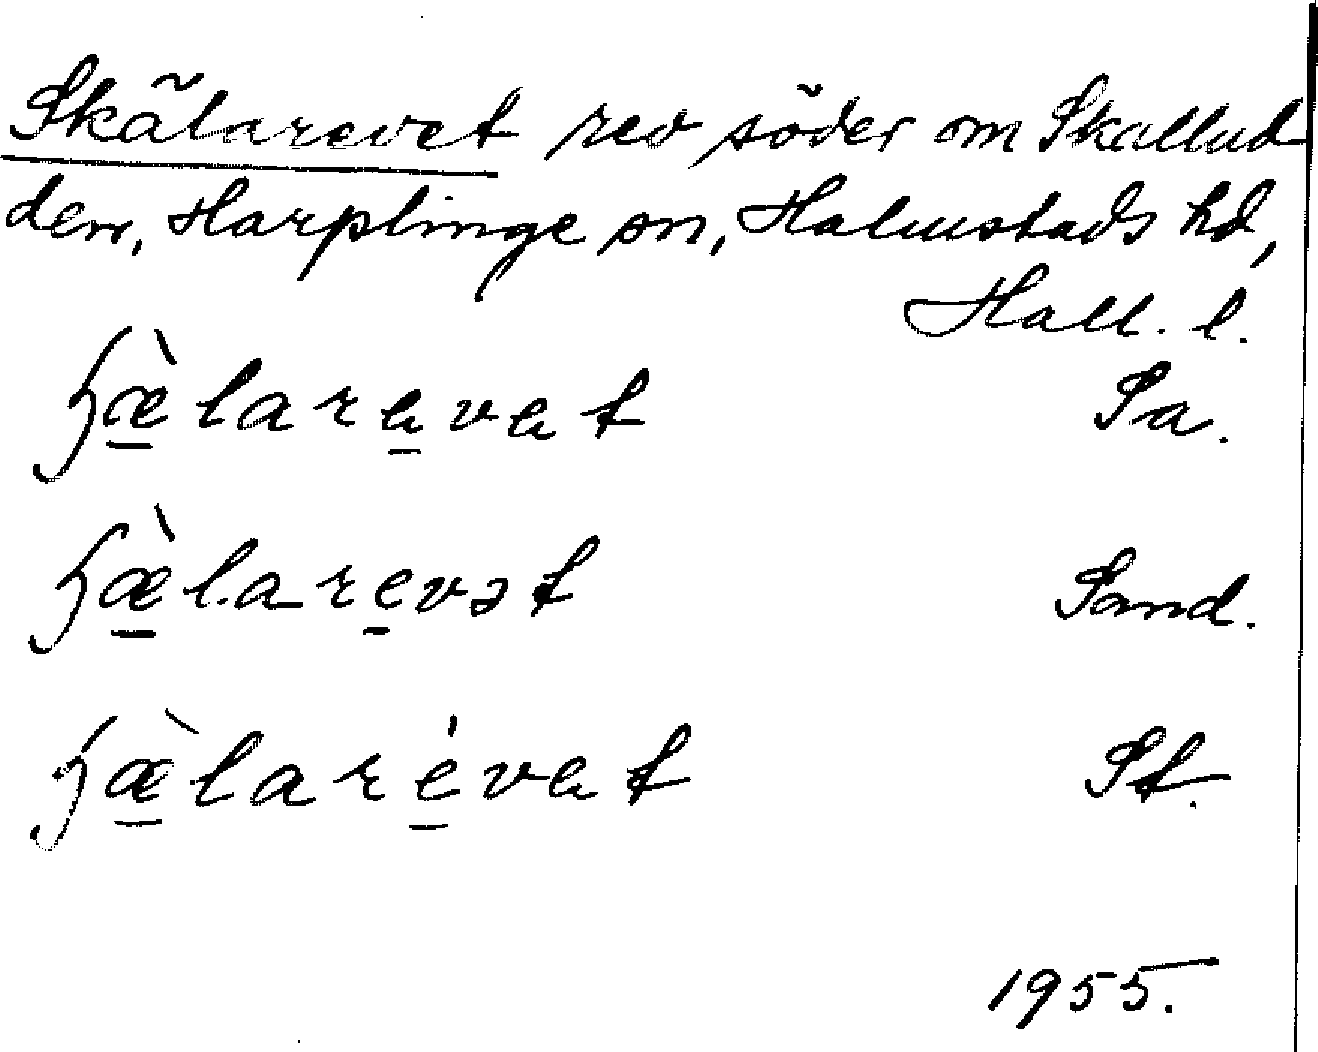 Skälarevet rev söder om Skallud
den, Harplinge sn, Halmstads hd,
Hall. l.
ɧæ̠̀lare̠vet Sa.
ɧæ̠̀lare̠vət Sand.
ɧæ̠̀laré̠vet St.
1955.